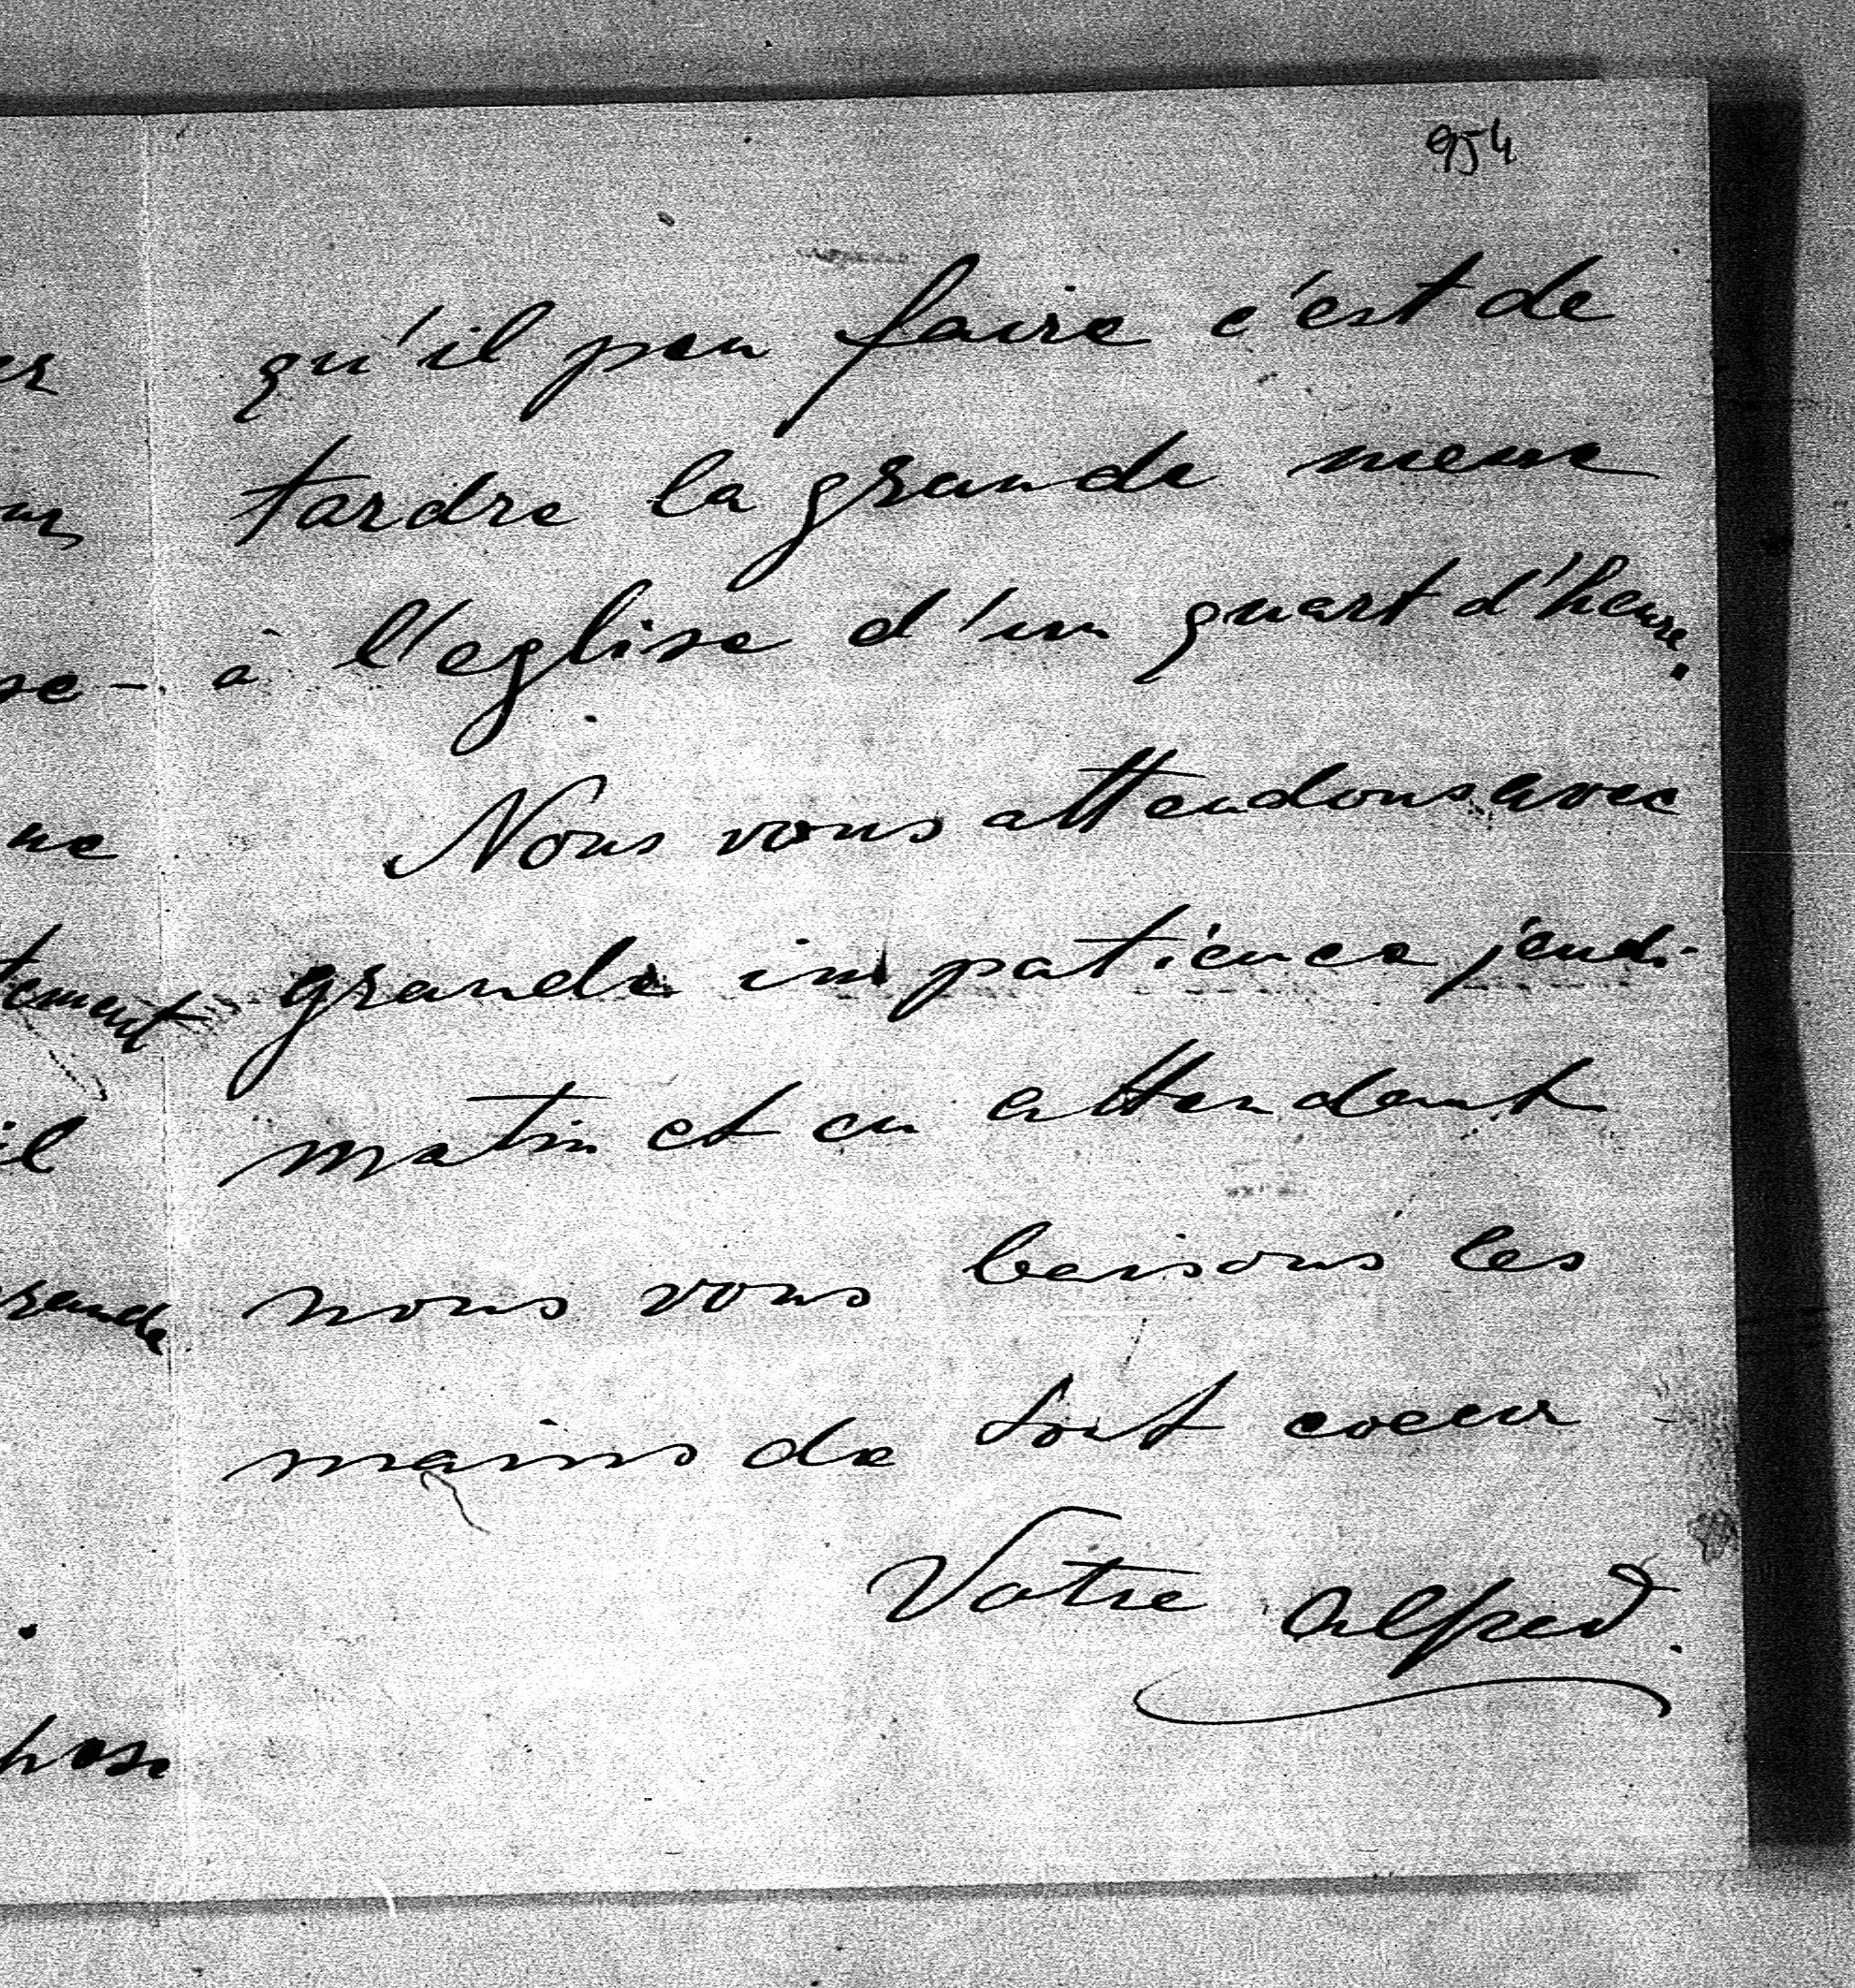 954
qu'il peu faire c'est de
tardre la grande
à l'eglise d'un quart d'heure.
Nous vous attendons avec
grande impatience jeudi
matin et en attendant
nous vous baisons les
mains de tout coeur
Votre Alfred.
ne
tement
il
rande